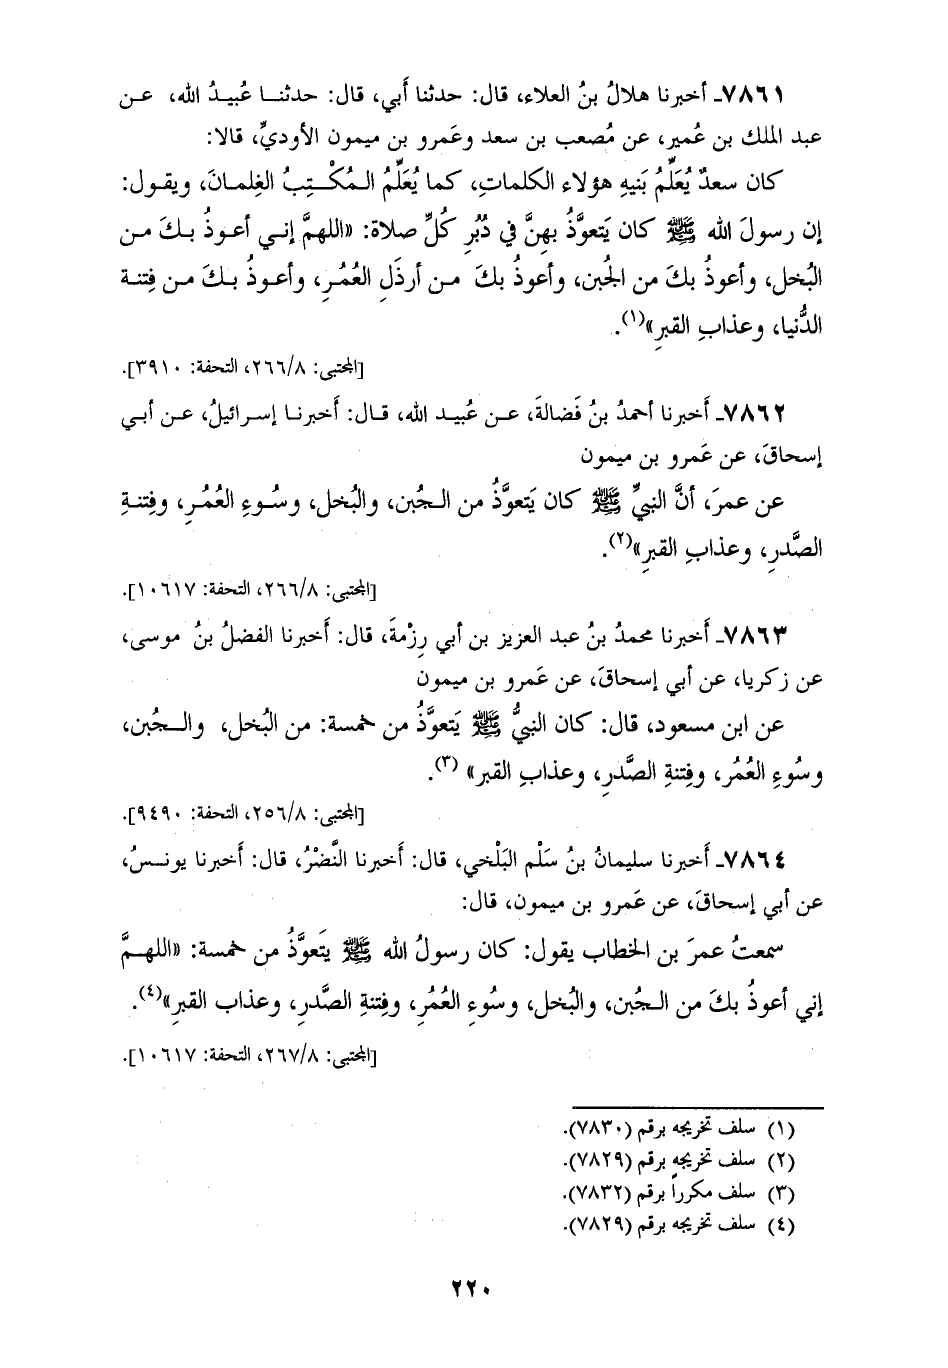 ٧٨٦١ـ أخبرنا هلالُ بنُ العلاء، قال: حدثنا أَبي، قال: حدثنـا عُبيدُ الله، عـن
عبد الملك بن عُمير، عن مُصعب بن سعد وعَمرو بن ميمون الأوديِّ، قالا:
كان سعدٌ يُعَلِّمُ بَنيهِ هؤلاء الكلماتِ، كما يُعَلِّمُ الـمُكْـتِبُ الغِلمانَ، ويقول:
إن رسولَ الله ﷺ كان يَتعوَّذُ بهِنَّ في دُبُرِ كُلِّ صلاة: «اللهمَّ إنـي أعـوذُ بـكَ مـن
البُخل، وأعوذُ بكَ من الجُبن، وأعوذُ بكَ مـن أرذَلِ العُمُـرِ، وأعـوذُ بـكَ مـن فِتنـة
الدُّنيا، وعذابِ القبرِ»(١).
[المجتبى: ٢٦٦/٨، التحفة: ٣٩١٠].
٧٨٦٢ـ أَخبرنا أحمدُ بنُ فَضالةَ، عـن عُبيـد الله، قـال: أَخبرنـا إسـرائيلُ، عـن أبـي
إسحاقَ، عن عَمرو بن ميمون
عن عمرَ، أنَّ النبيَّ ﷺ كان يَتعوَّذُ من الـجُبن، والبُخل، وسُـوءِ العُمُـرِ، وفِتنـةِ
الصَّدرِ، وعذابِ القبرِ»(٢).
[المجتبى: ٢٦٦/٨، التحفة: ١٠٦١٧].
٧٨٦٣ـ أَخبرنا محمدُ بنُ عبد العزيز بن أبي رِزْمةَ، قال: أَخبرنا الفضلُ بنُ موسى،
عن زكريا، عن أبي إسحاقَ، عن عَمرو بن ميمون
عن ابن مسعود، قال: كان النبيُّ ﷺ يَتعوَّذُ من خمسة: من البُخل، والـجُبن،
وسُوءِ العُمُر، وفِتنةِ الصَّدرِ، وعذابِ القبر» (٣).
[المجتبى: ٢٥٦/٨، التحفة: ٩٤٩٠].
٧٨٦٤ـ أَخبرنا سليمانُ بنُ سَلْم البَلْخي، قال: أَخبرنا النَّضْرُ، قال: أَخبرنا يونـسُ،
عن أبي إسحاقَ، عن عَمرو بن ميمون، قال:
سمعتُ عمرَ بن الخطاب يقول: كان رسولُ الله ﷺ يَتعوَّذُ من خمسة: «اللهـمَّ
إني أعوذُ بكَ من الـجُبن، والبُخل، وسُوءِ العُمُرِ، وفِتنةِ الصَّدرِ، وعذاب القبرِ»(٤).
[المجتبى: ٢٦٧/٨، التحفة: ١٠٦١٧].
(١) سلف تخريجه برقم (٧٨٣٠).
(٢) سلف تخريجه برقم (٧٨٢٩).
(٣) سلف مكرراً برقم (٧٨٣٢).
(٤) سلف تخريجه برقم (٧٨٢٩).
٢٢٠